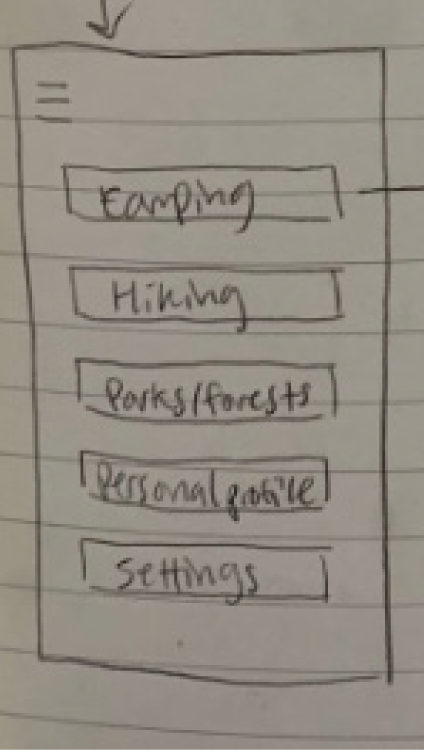 Camping
Hiking
Parks/forests
Personal profile
Settings